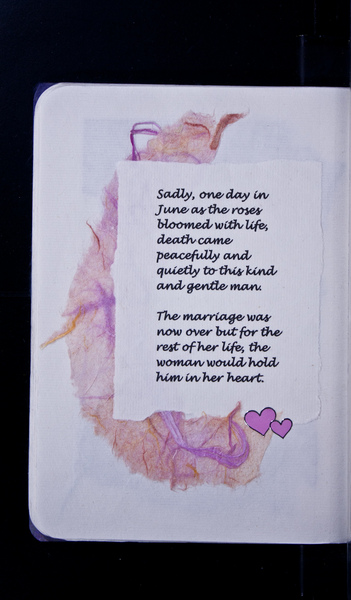 Sadly, one day in
June as the roses
bloomed with life,
death came
peacefully and
quietly to this kind
and gentle man.
The marriage was
now over but for the
rest of her life, the
woman would hold
him in her heart.